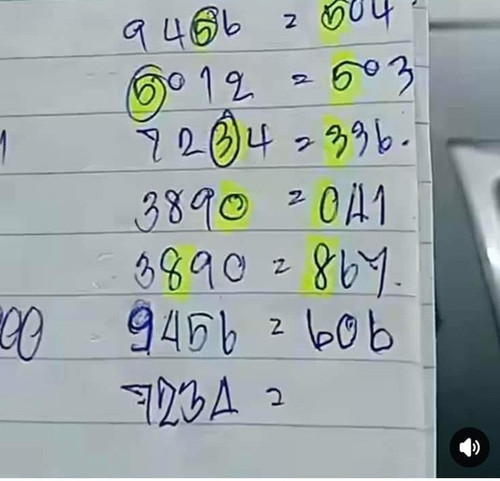 9456 = 504
5012 = 503
1 7234 = 336.
3890 = 041
3890 = 867.
00 9456 = 606
7234 =